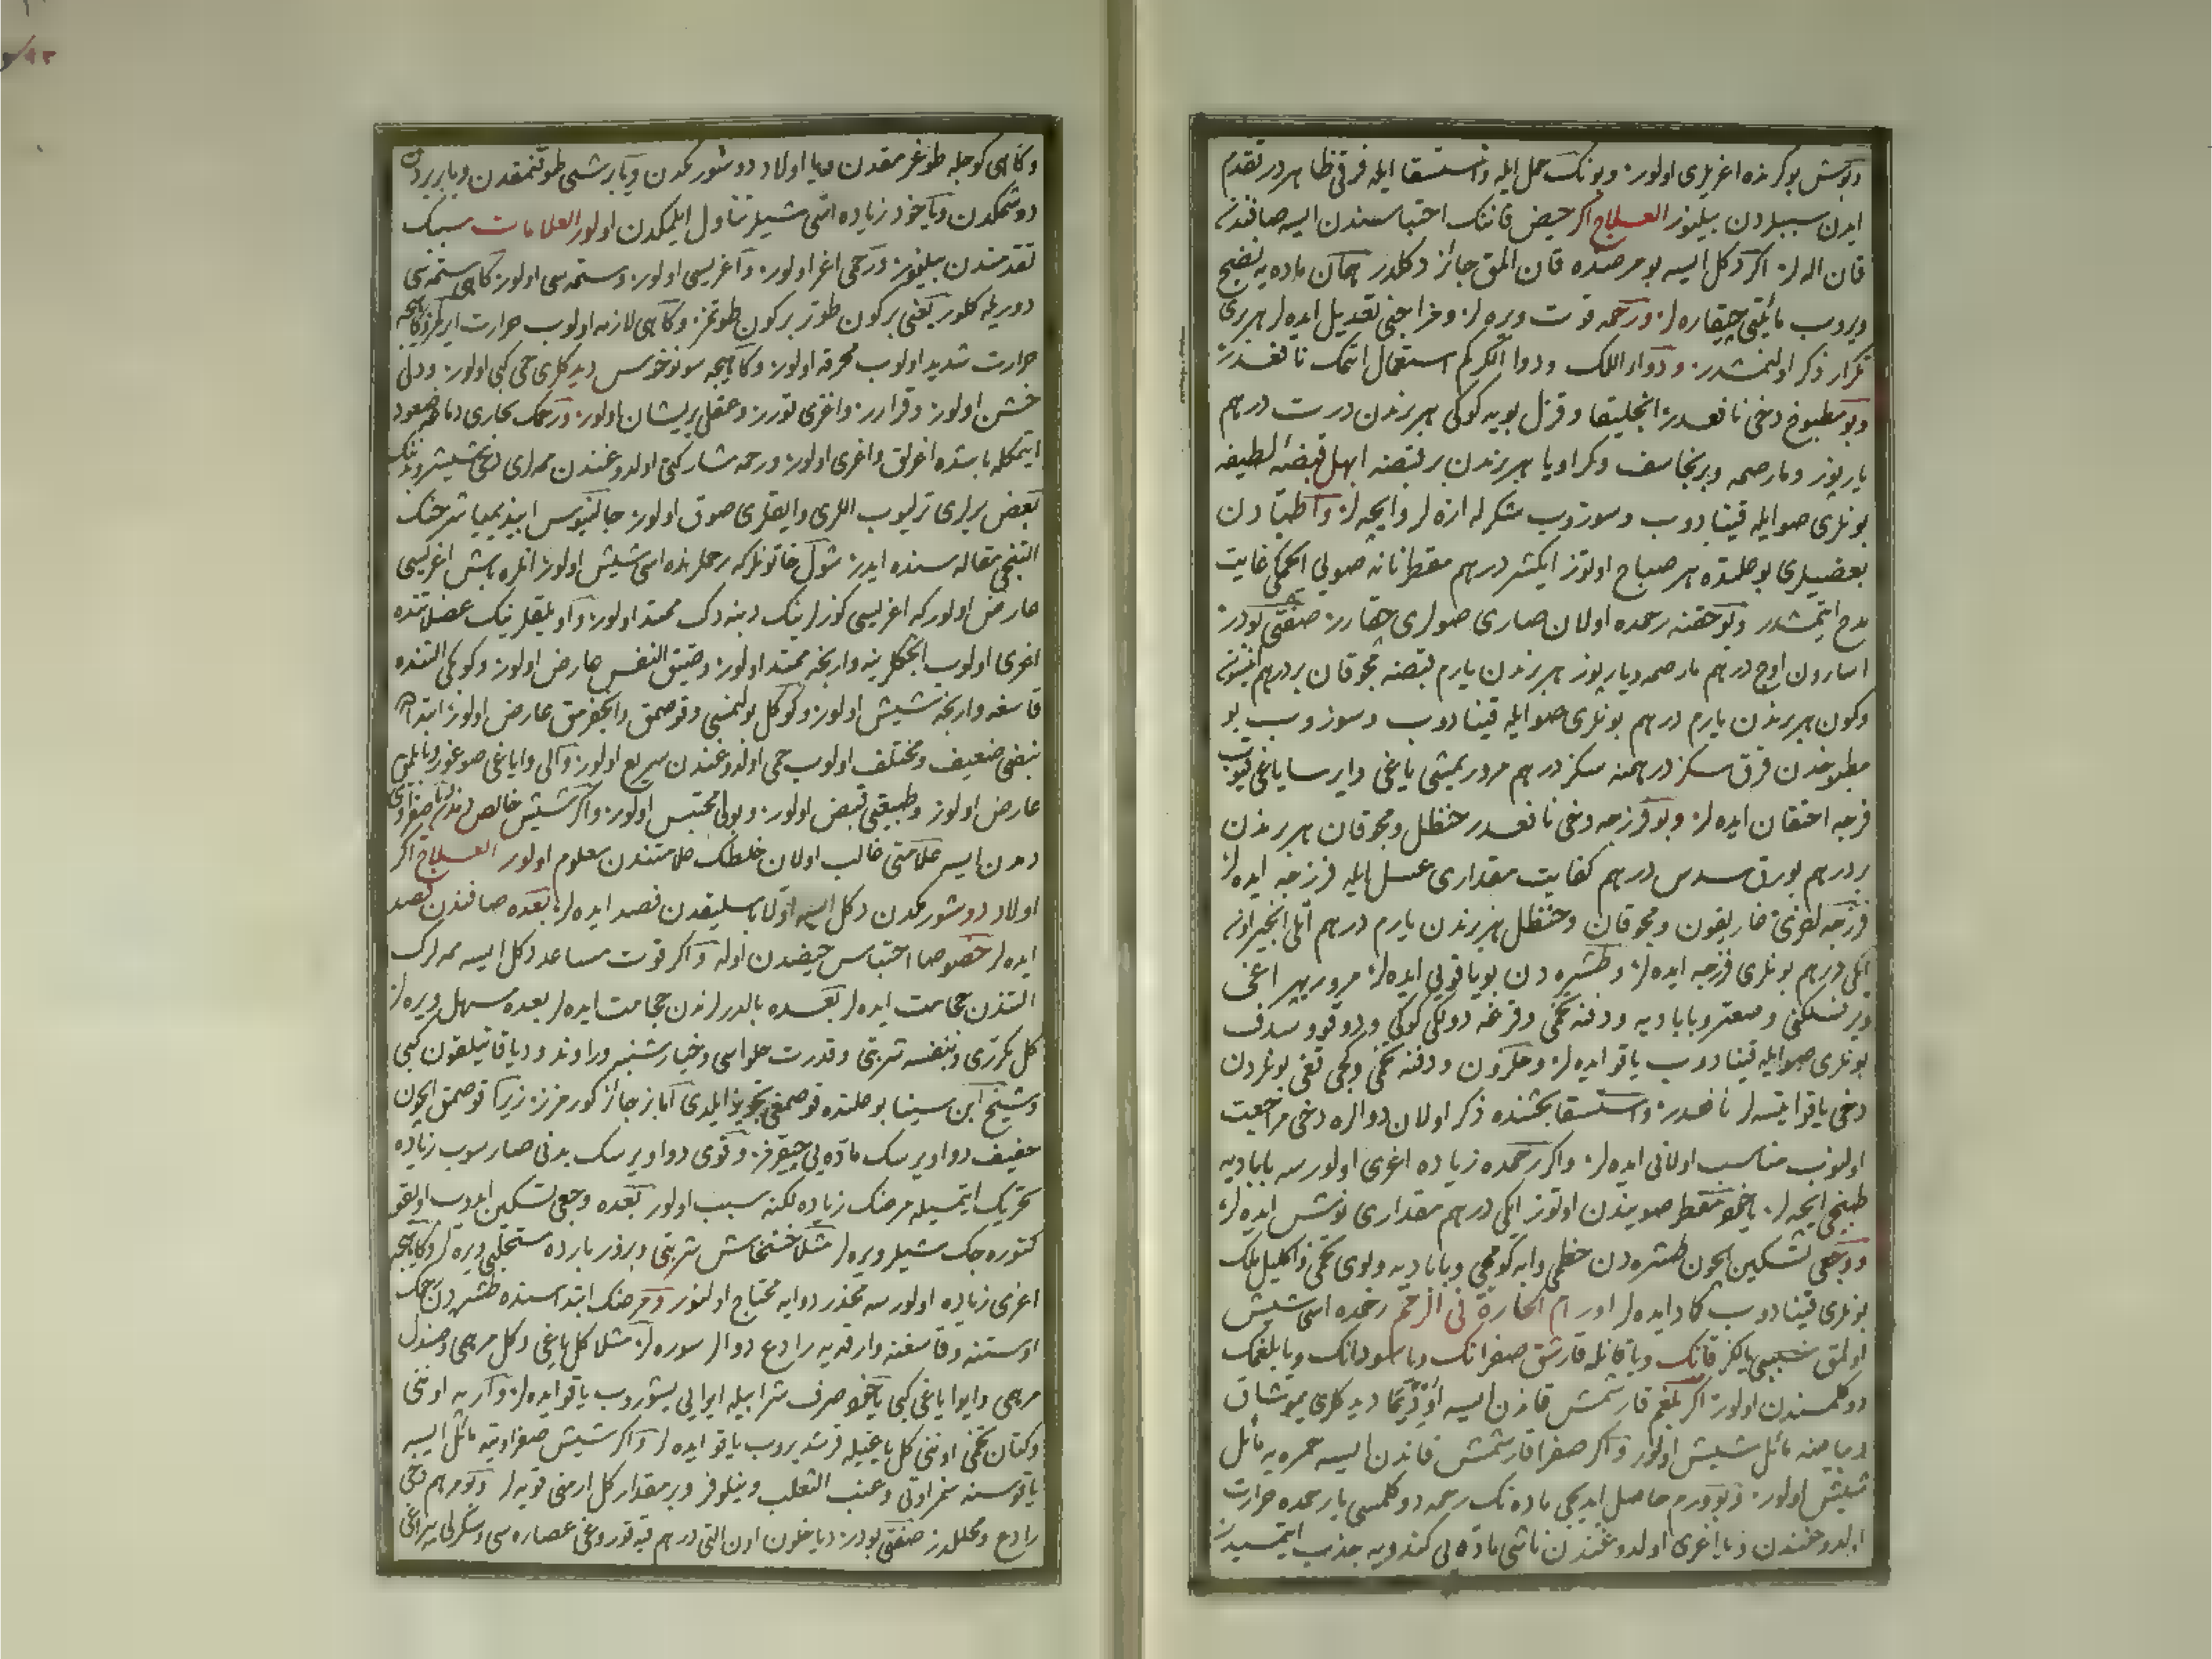 وبوش بوكرنده اغريلرى اولور وبونك حمل ايله واستسقا ايله فرقى ظاهردر تقدم
ايدن سببلردن بيلنور العلاج اكر حيض قاننك احتباسندن ايسه صافندن
قان اله لر اكر دكل ايسه بو مرضده قان المق جائز دكلدر همان ماده يه نضج
ويروب مائيتى چيقاره لر ورحمه قوت ويره لر ومزاجنى تعديل ايده لر هر برى
تكرار ذكر اولنمشدر ودواء اللك ودواء الكركم استعمال اتمك نافعدر
وبو مطبوخ دخى نافعدر انجليقا وقزل بويه كوكى هر برندن درت درهم
يارپوز ومارصمه وبرنجاسف وكراويا هر برندن بر قبضه ابهل قبضۀ لطيفه
بونلرى صو ايله قينادوب وسوزوب شكرله ازه لر وايچه لر واطبادن
بعضيلرى بو علتده هر صباح اوتوز ايكيشر درهم مقطر نانه صويى ايچمكى غايت
مدح ايتمشدر وبو حقنه رحمده اولان صارى صولرى چقارر صفتى بودر
اسارون اوچ درهم مارصمه ويارپوز هر برندن يارم قبضه محوقان بر درهم افتيمون
وكمون هر برندن يارم درهم بونلرى صو ايله قينادوب وسوزوب بو
مطبوخدن قرق سكز درهمنه سكز درهم مردريمشى ياغى وايرسا ياغى قيوب
فرجه احتقان ايده لر وبو فرزجه دخى نافعدر حنظل ومحوقان هر برندن
بر درهم بورق سدس درهم كفايت مقدارى عسل ايله فرزجه ايده لر
فرزجۀ اخرى غاريقون ومحوقان وحنظل هر برندن يارم درهم اتلى انجير اون
ايكى درهم بونلرى فرزجه ايده لر وطشره دن بو ياقويى ايده لر مرور پهر اغى
وپرنسكفى وصعتر وبابادیه ودفنه تخمى وقرغه دولكى كوكى وردوقو وسدف
بونلرى صو ايله قينادوب ياقو ايده لر وحلزون ودفنه تخمى وكجى تغى بونلردن
دخى ياقو ايتسه لر نافعدر واستسقا بحثنده ذكر اولان دوالره دخى مراجعت
اولنوب مناسب اولانى ايده لر واكر رحمده زياده اغرى اولورسه بابادیه
طبخى ايچه لر ياخود مقطر صويندن اوتوز ايكى درهم مقدارى نوش ايده لر
ووجعى تسكين ايچون طشره دن خطمى وابه كومجى وبابادیه وبوى تخمى واكليل ملك
بونلرى قينادوب كماد ايده لر اورام الحارة فى الرحم رحمده اسى شيش
اولمق سببى يالكز قانك ويا قانله قارشق صفرانك ويا سودانك ويا بلغمك
دوكلمسندن اولور اكر بلغم قارشمش قاندن ايسه اوذيما ديدكلرى يموشاق
وبياضه مائل شيش اولور واكر صفرا قارشمش قاندن ايسه حمره يه مائل
شيش اولور وبو ورم حاصل ايديجى ماده نك رحمه دوكلمسى يا رحمده حرارت
اولدوغندن ويا اغرى اولدوغندن ناشى ماده يى كندويه جذب ايتمسيدر
وكاهى كوجله طوغرمقدن ويا اولاد دوشورمكدن ويا بر شيى طوقنمقدن ويا بر يردن
دوشمكدن وياخود زياده اسى شيلر تناول ايلمكدن اولور العلامات سببك
تقدمندن بيلنور ورحمى اغر اولور واغريسى اولور وستمه سى اولور كاهى ستمه سى
دوريله كلور يعنى بر كون طوتر بر كون طوتمز وكاهى لازمه اولوب حرارت ايركرز وكاهيجه
حرارت شديد اولوب محرقه اولور وكاهيجه سونوخوس ديدكلرى حمى كبى اولور ودلى
خشن اولور وقرارر واغزى قورر وعقلى پريشان اولور ورحمك بخارى دماغه صعود
ايتمكله باشده اغرلق واغرى اولور ورحمه مشاركتى اولدوغندن ممه لرى دخى شيشر وبدننك
بعض يرلرى ترليوب اللرى واياقلرى صوق اولور جالينوس ابيذيميا شرحنك
التنجى مقاله سنده ايدر شول خاتونلركه رحملرنده اسى شيش اولور انلره باش اغريسى
عارض اولوركه اغريسى كوزلرينك دبنه دك ممتد اولور واويلقلرينك عضلاتنده
اغرى اولوب انجكلرينه وارنجه ممتد اولور وضيق النفس عارض اولور وكوبكى التنده
قاسغه وارنجه شيش اولور وكوكل بولنمسى وقوصمق وانجغرمق عارض اولور ابتدا
نبضى ضعيف ومختلف اولوب حمى اولدوغندن سريع اولور والى واياغى صوغور وبايلمق
عارض اولور وطبيعتى قبض اولور وبولى محتبس اولور واكر شيش خالص دمدن يا صفراوى
دمدن ايسه علامتى غالب اولان خلطك علامتندن معلوم اولور العلاج اكر
اولاد دوشورمكدن دكل ايسه اولا باسليقدن فصد ايده لر بعده صافندن فصد
ايده لر خصوصا احتباس حيضدن اوله واكر قوت مساعد دكل ايسه ممه لرك
التندن حجامت ايده لر بعده بالدرلرندن حجامت ايده لر بعده مسهل ويره لر
كل مكررى وبنفسه شربتى وقدرت حلواسى وخيارشنبر وراوند وديا قاتيلقون كبى
وشيخ ابن سينا بو علتده قوصمغى تجويز ايلدى اما بز جائز كورمزز زيرا قوصمق ايچون
خفيف دوا ويرسك ماده يى چيقرمز وقوى دوا ويرسك بدنى صارسوب زياده
تحريك ايتمسيله مرضك زياده لكنه سبب اولور بعده وجعى تسكين ايدوب اويقو
كتوره جك شيلر ويره لر مثلا خشخاش شربتى وبزور بارده مستحلبى ويره لر وكاهيجه
اغرى زياده اولورسه مخدر دوايه محتاج اولنور ومرضك ابتداسنده طشره دن رحمك
اوستنه وقاسغنه وارقه يه رادع دوالر سوره لر مثلا كل ياغى وكل مرهمى وصندل
مرهمى وايوا ياغى كبى ياخود صرف شرابيله ايوايى پشوروب ياقو ايده لر وآرپه اوننى
وكتان تخمى اوننى كل ياغيله قرشديروب ياقو ايده لر واكر شيش صفراويته مائل ايسه
ياقوسنه سكراوتى وعنب الثعلب ونيلوفر وبر مقدار كل ارمنى قويه لر وبو مرهم دخى
رادع ومحللدر صفتى بودر دياخلون اون التى درهم قپه قوروغى عصاره سى وسكرلى پيراغى